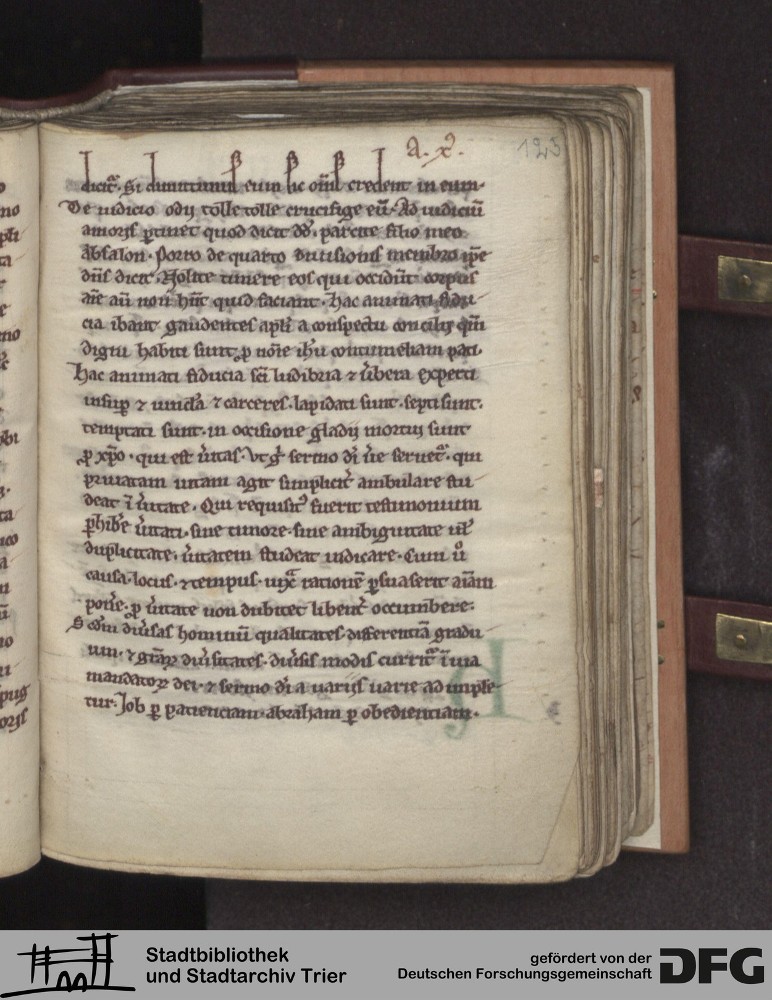 A. x̄.
123
dicit᷑. Si dimittimuſ eum ſic om̄ſ credent in eum.
De iudicio odij tolle tolle crucifige eū. Ad iudiciū
amoriſ ꝑtinet quod dicit dd̄. parcite filio meo
abſalon. Porro de quarto diuiſioniſ membro ip̄e
dn̄ſ dicit. Nolite timere eoſ qui occidūt corpuſ
aīe aū non hn̄t quid faciant. Hac animati fidu
cia ibant gaudenteſ apl̄i a conſpectu concilij qm̄
digni habiti ſunt ꝓ noīe ih̄u contumeliam pati.
Hac animati fiducia ſc̄i ludibria ⁊ ūbera experti
inſuꝑ ⁊ uincl̄a ⁊ carcereſ. lapidati ſunt. ſecti ſunt.
temptati ſunt. in occiſione gladij mortui ſunt
ꝓ xp̄o. qui eſt ūitaſ. Vt gͦ ſermo dī īne ſeruet᷑. qui
priuatam uitam agit ſimplicit᷑ ambulare ſtu
deat ī ūitate. Qui requiſit᷒ fuerit teſtimonium
ꝑhibe ūitati. ſine timore. ſine ambiguitate ul̄
duplicitate. ūitatem ſtudeat iudicare. Cum ū
cauſa. locuſ. ⁊ tempuſ. iuxͭ rationē ꝑſuaſerit aīam
pone. ꝓ ūitate non dubitet libent᷑ occumbere.
Scdm̄ diūſaſ hominū qualitateſ differentiā gradu
um. ⁊ gr̄aꝝ diūſitateſ. diūſiſ modiſ currit᷑ ī uia
mandatoꝝ dei. ⁊ ſermo dī a uarijſ uarie adimple
tur. Job ꝑ patienciam. abraham ꝑ obedienciam.
Stadtbibliothek
und Stadtarchiv Trier
gefördert von der
Deutschen Forschungsgemeinschaft
DFG